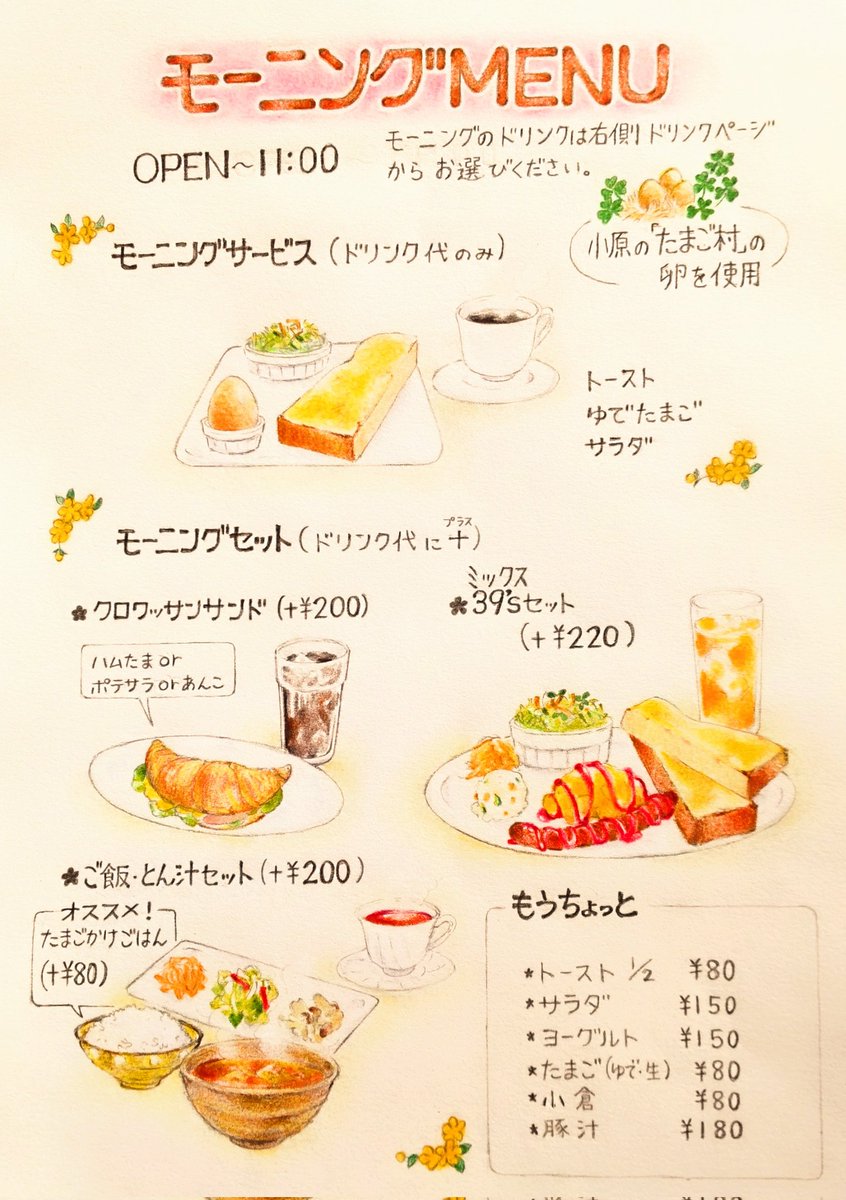 モーニングMENU
OPEN～11:00
モーニングのドリンクは右側ドリンクページ
からお選びください。
小原の「たまご村」の
卵を使用
モーニングサービス（ドリンク代のみ）
トースト
ゆでたまご
サラダ
プラス
モーニングセット（ドリンク代に＋）
クロワッサンサンド（＋¥200）
ハムたまor
ポテサラorあんこ
ミックス
39'sセット
（＋¥220）
ご飯・とん汁セット（＋¥200）
オススメ！
たまごかけごはん
（＋¥80）
もうちょっと
*トースト 1/2 ¥80
*サラダ ¥150
*ヨーグルト ¥150
*たまご（ゆで・生） ¥80
*小倉 ¥80
*豚汁 ¥180